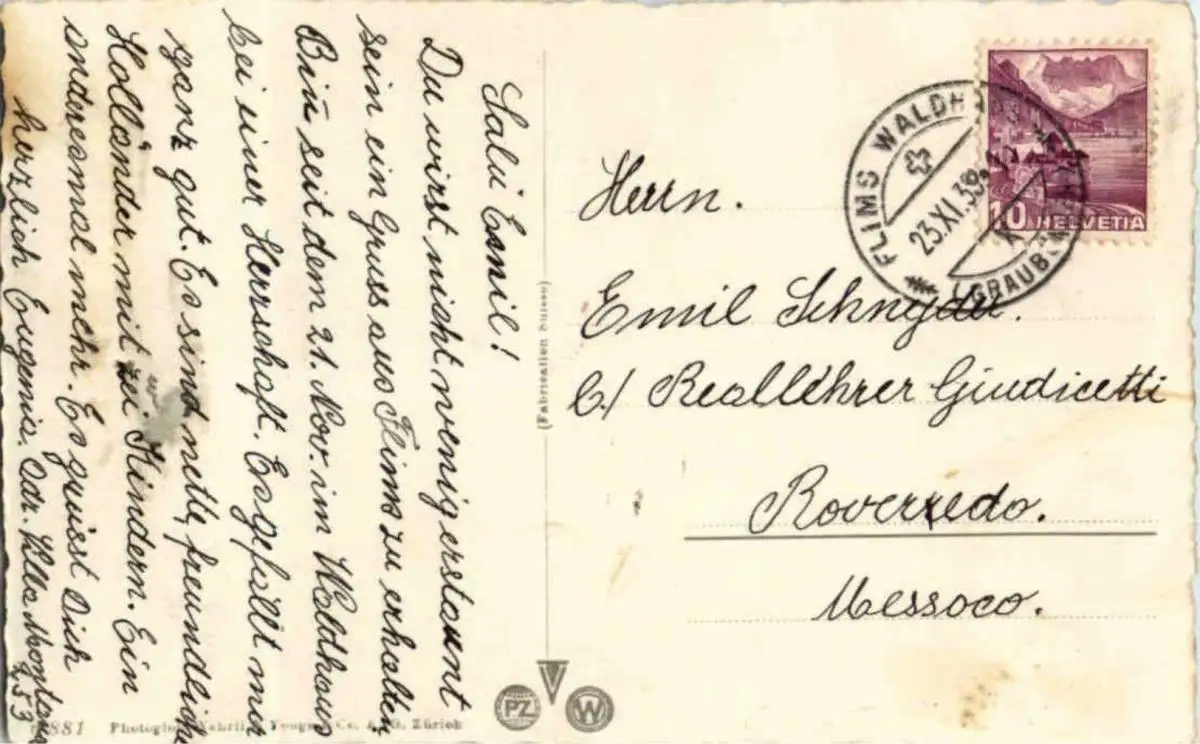 Salü Emil!
Du wirst nicht wenig erstaunt
sein ein Gruss aus Flims zu erhalten.
Bin seit dem 21. Nov. im Waldhaus
bei einer Herrschaft. Es gefällt mir
ganz gut. Es sind nette, freundliche
Holländer mit zwei Kindern. Ein
anderesmal mehr. Es grüsst Dich
herzlich Eugenia. Adr. Villa Montana
253
(Fabrication Suisse)
FLIMS WALDHAUS
23.XI.38
(GRAUB
10 HELVETIA
Herrn.
Emil Schnyder.
C/ Reallehrer Giudicetti
Roveredo.
Messoco.
PZ
W
881 Photoglob-Wehrli & Vouga & Co. A.G. Zürich